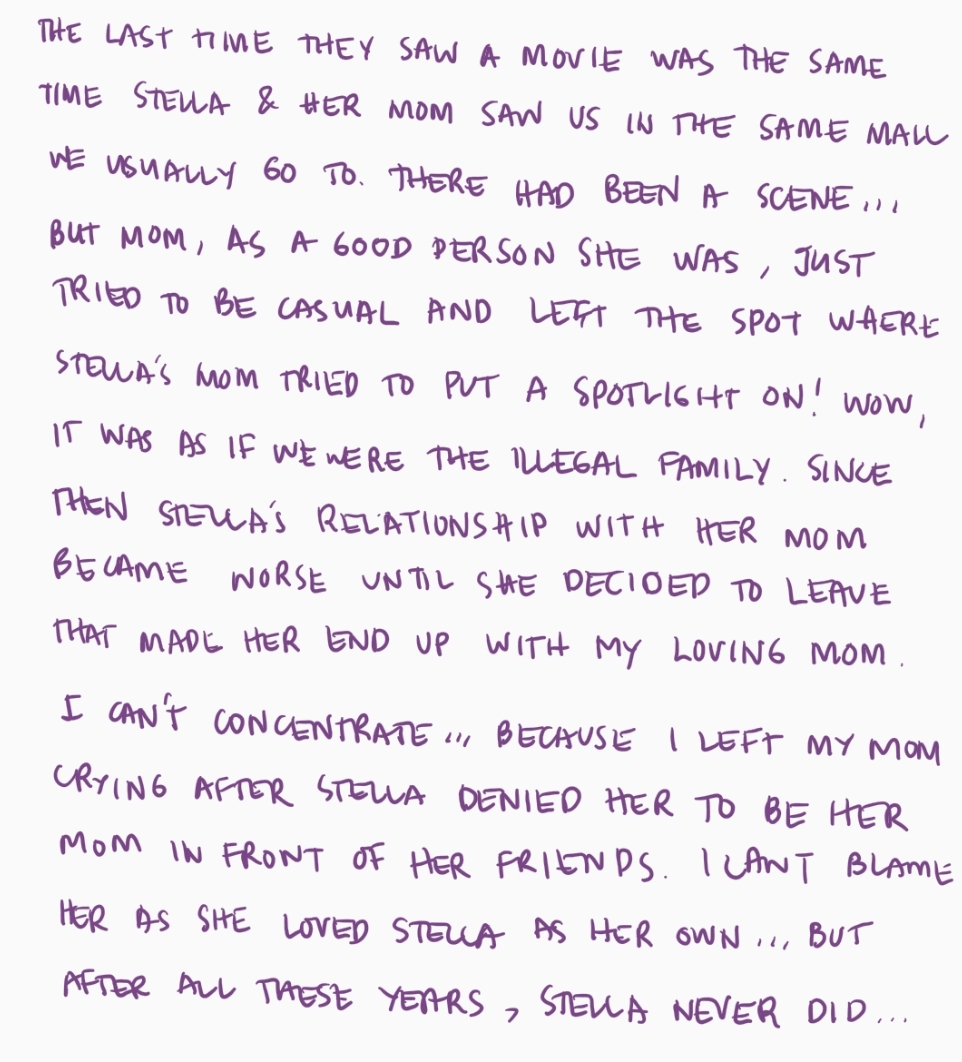 THE LAST TIME THEY SAW A MOVIE WAS THE SAME
TIME STELLA & HER MOM SAW US IN THE SAME MALL
WE USUALLY GO TO. THERE HAD BEEN A SCENE...
BUT MOM, AS A GOOD PERSON SHE WAS, JUST
TRIED TO BE CASUAL AND LEFT THE SPOT WHERE
STELLA'S MOM TRIED TO PUT A SPOTLIGHT ON! WOW,
IT WAS AS IF WE WERE THE ILLEGAL FAMILY. SINCE
THEN STELLA'S RELATIONSHIP WITH HER MOM
BECAME WORSE UNTIL SHE DECIDED TO LEAVE
THAT MADE HER END UP WITH MY LOVING MOM.
I CAN'T CONCENTRATE... BECAUSE I LEFT MY MOM
CRYING AFTER STELLA DENIED HER TO BE HER
MOM IN FRONT OF HER FRIENDS. I CANT BLAME
HER AS SHE LOVED STELLA AS HER OWN... BUT
AFTER ALL THESE YEARS, STELLA NEVER DID...